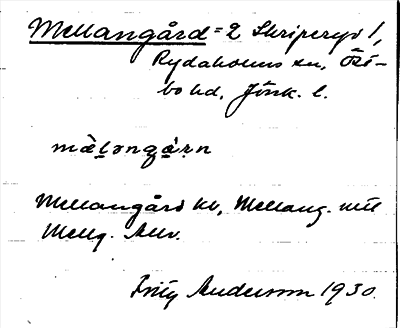 Mellangård = 2 Skriperyd 1,
Rydaholms sn, Öst-
bo hd, Jönk. l.
mèlǝngạ̊ṛn
Mellangård kb, Mellang. mtl
Mellg. Allv.
Fritz Anderson 1930.